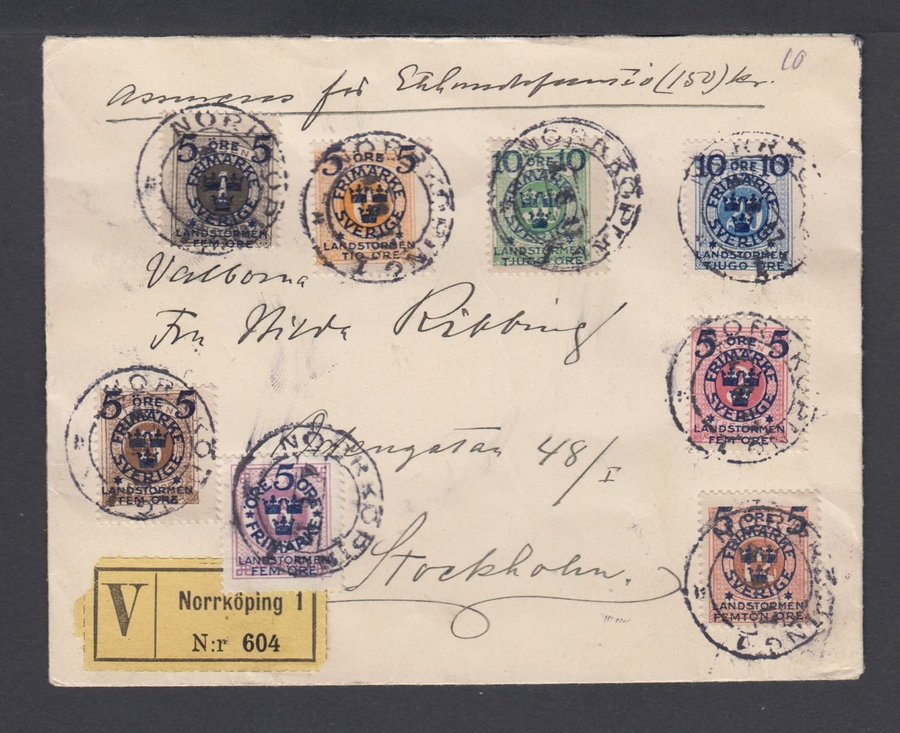 10
för (150) kr.
5 ÖRE 5
FRIMÄRKE SVERIGE
LANDSTORMEN
FEM ÖRE
NORRKÖPING
5 ÖRE 5
FRIMÄRKE SVERIGE
LANDSTORMEN
TIO ÖRE
NORRKÖPING 1
10 ÖRE 10
FRIMÄRKE SVERIGE
LANDSTORMEN
TJUGO ÖRE
NORRKÖPING
10 ÖRE 10
FRIMÄRKE SVERIGE
LANDSTORMEN
TJUGO ÖRE
NORRKÖPING
Fru Hilda Ribbing
5 ÖRE 5
FRIMÄRKE SVERIGE
LANDSTORMEN
FEM ÖRE
NORRKÖPING 1
5 ÖRE 5
FRIMÄRKE SVERIGE
LANDSTORMEN
FEM ÖRE
NORRKÖPING
48/I
5
ÖRE ÖRE
FRIMÄRKE
LANDSTORMEN
FEM ÖRE
NORRKÖPING
Stockholm.
5 ÖRE 5
FRIMÄRKE SVERIGE
LANDSTORMEN
FEMTON ÖRE
NORRKÖPING 1
V
Norrköping 1
N:r 604